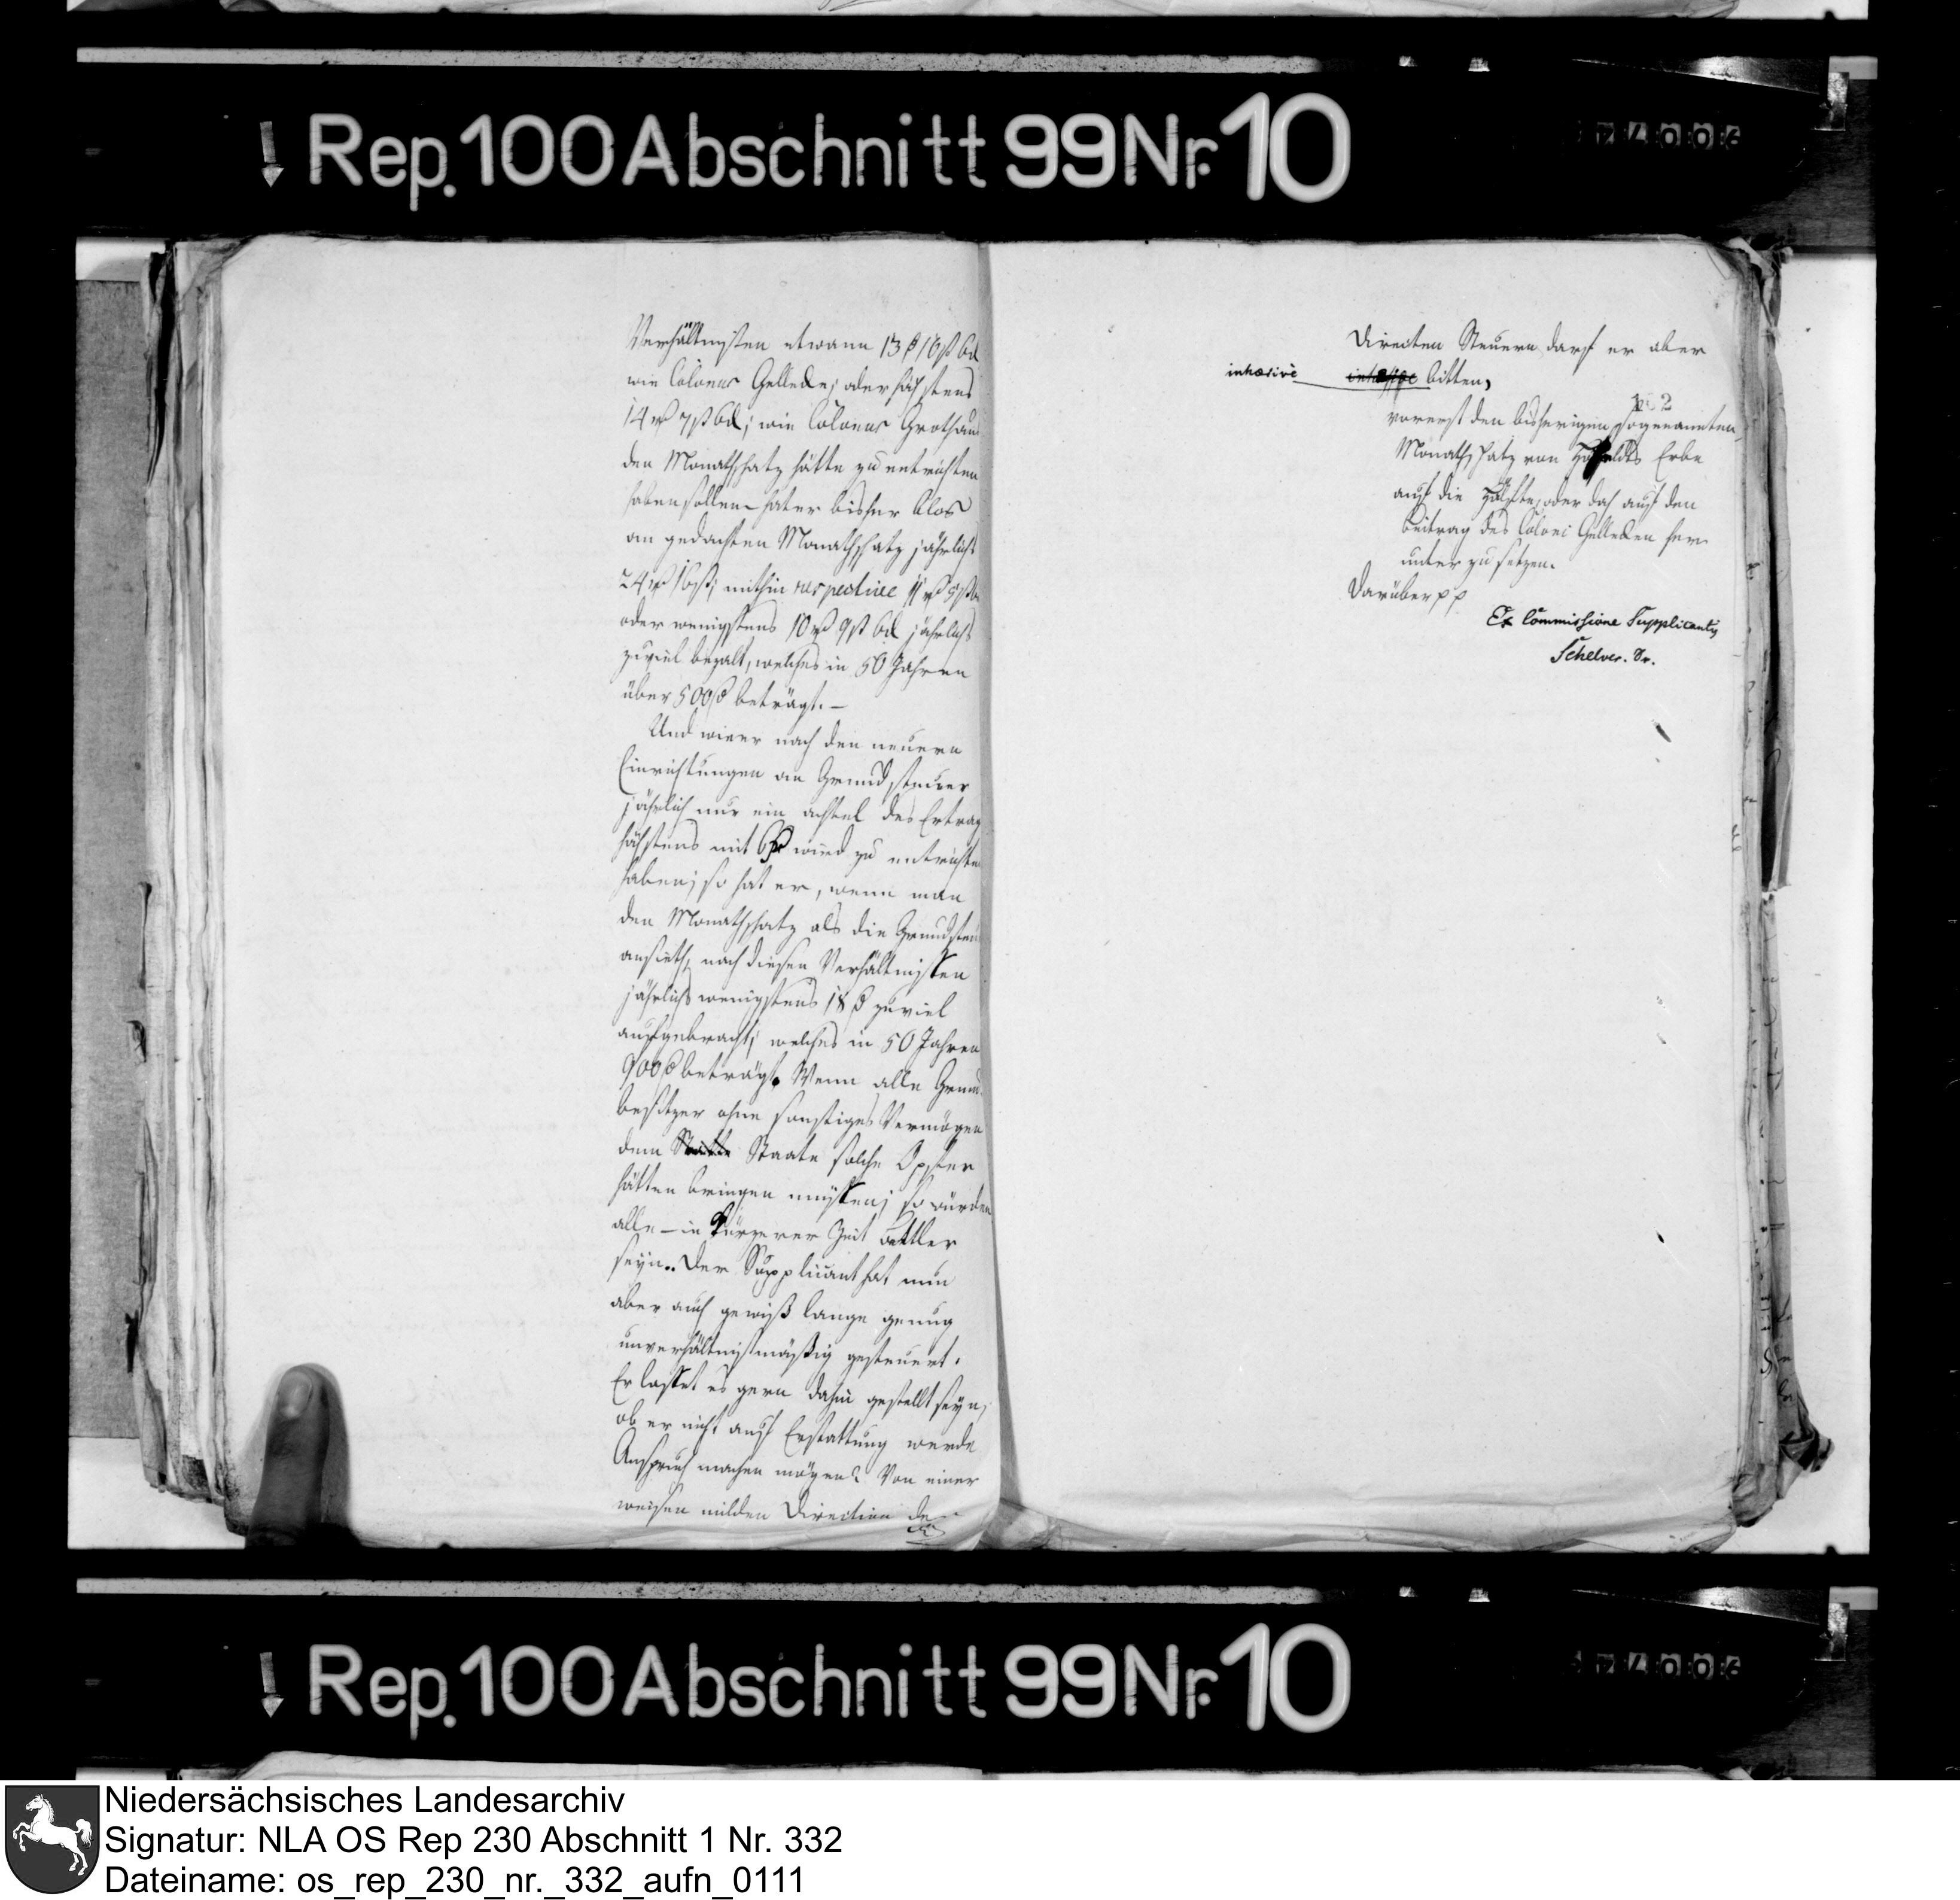 Rep. 100 Abschnitt 99 Nr. 10
Verhältnißen etwann 13 ß 16 ß 6 d
wie Colonus Gelleke; oder höchstens
14 rt 7 ß 6 d; wie Colonus Grothaus
den Monathschatz hätte zu entrichten
haben sollen – hat er bisher blos
an gedachten Monathschatz jährlich
24 rt 16 ß; mithin respective 11 rt 5 ß
oder wenigstens 10 rt 9 ß 6 d jährlich
zuviel bezalt, welches in 50 Jahren
über 500 beträgt. –
Und wie er nach den neuern
Einrichtungen an Grundsteuer
jährlich nur ein achtel des Ertrag
höchstens mit 6 wird zu entrichten
haben; so hat er, wenn man
den Monathschatz als die Grundsteu
ansieht, nach diesen Verhältnißen
jährlich wenigstens 18 zuviel
aufgebracht; welches in 50 Jahren
900 beträgt. Wenn alle Grund
besitzer ohne sonstiges Vermögen
dem Staate Staate solche Opfer
hätten bringen müßen; so würden
alle – in kürzerer Zeit Bettler
seyn.. Der Supplicant hat nun
aber auch gewiß lange genug
unverhältnißmäßig gesteuert.
Er laßet es gern dahin gestellt seyn,
ob er nicht auf Erstattung werde
Anspruch machen mögen? Von einer
weisen milden Direction der
di
directen Steuern darf er aber
inhaesivè inhaesive bitten,
102
vorerst den bisherigen sogenannten
Monathschatz von Erbe
auf die Hälfte, oder doch auf den
Beitrag des Coloni Gelleken her-
unter zu setzen.
Darüber pp
Ex Commissione Supplicantis
Schelver. Dr.
Rep. 100 Abschnitt 99 Nr. 10
Niedersächsisches Landesarchiv
Signatur: NLA OS Rep 230 Abschnitt 1 Nr. 332
Dateiname: os_rep_230_nr._332_aufn_0111